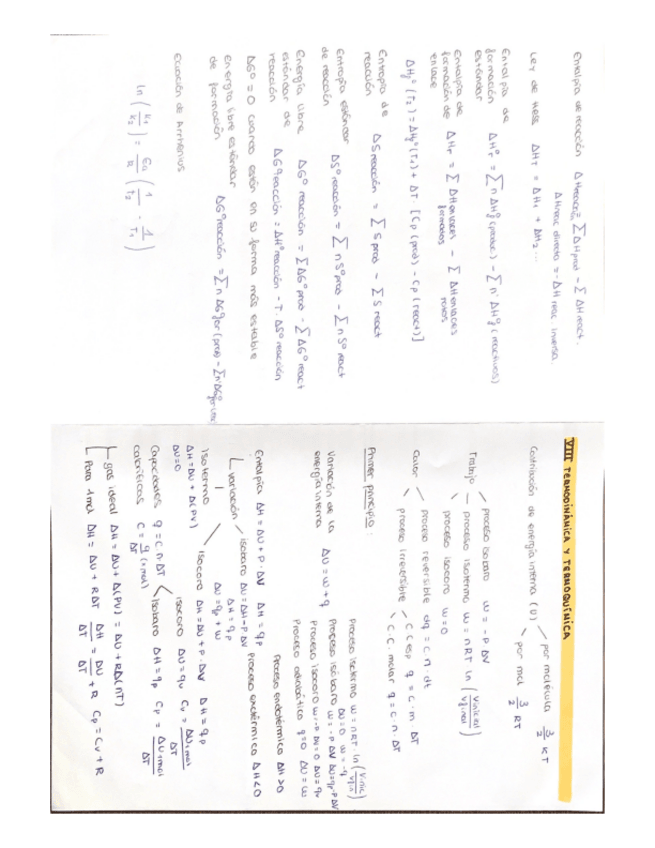 VIII TERMODINÁMICA Y TERMOQUÍMICA
Contribución de energía interna (U)
por molécula 3/2 KT
por mol 3/2 RT
Trabajo
proceso isobaro W = -P ΔV
proceso isotermo W = nRT ln (Vinicial/Vfinal)
proceso isocoro W = 0
Calor
proceso reversible dq = C n dt
proceso irreversible
C.C esp q = c · m · ΔT
C.C. molar q = c · n · ΔT
Primer principio:
Variación de la energía interna ΔU = W + q
Proceso isotermo W = nRT · ln
ΔU = 0 W = -q
Proceso isobaro W = -P ΔV
Proceso isocoro W = -P ΔV = 0 ΔU = qv
Proceso adiabático q = 0 ΔU = W
Entalpía ΔH = ΔU + P · ΔV ΔH = qp
Proceso endotérmico ΔH > 0
Proceso exotérmico ΔH < 0
Variación
isobaro ΔU = ΔH - P ΔV
ΔH = qp
ΔU = qp + W
isocoro ΔH = ΔU + P · ΔV ΔH = qp
Isotermo
ΔH = ΔU + Δ(PV)
ΔU = 0
Capacidades caloríficas
q = C · n · ΔT
C = q/ΔT (1 mol)
isocoro ΔU = qv Cv = ΔU 1 mol/ΔT
isobaro ΔH = qp Cp = ΔU 1 mol/ΔT
gas ideal ΔH = ΔU + Δ(PV) = ΔU + RΔ(nT)
Para 1 mol ΔH = ΔU + RΔT ΔH/ΔT = ΔU/ΔT + R Cp = Cv + R
Entalpía de reacción ΔHreacción = ∑ ΔHprod - ∑ ΔHreact.
ΔHreac directa = -ΔHreac inversa.
Ley de Hess ΔHT = ΔH1 + ΔH2 ...
Entalpía de formación estándar ΔH°r = ∑n ΔH°f (produc) - ∑n · ΔH°f (reactivos)
Entalpía de formación de enlace ΔHr = ∑ ΔHenlaces formados - ∑ ΔHenlaces rotos
ΔHf° (T2) = ΔHf° (T1) + ΔT · [Cp (prod) - Cp (react)]
Entropía de reacción ΔSreacción = ∑ Sprod - ∑ Sreact
Entropía estándar de reacción ΔS°reacción = ∑ n S°prod - ∑ n S°react
Energía libre estándar de reacción ΔG°reacción = ∑ ΔG°prod - ∑ ΔG°react
ΔG°reacción = ΔH°reacción - T · ΔS°reacción
ΔG° = 0 cuando están en su forma más estable
energía libre estándar de formación ΔG°reacción = ∑ n ΔG°for (prod) - ∑ n ΔG°
Ecuación de Arrhenius
ln (k1/k2) = Ea/R (1/T2 - 1/T1)